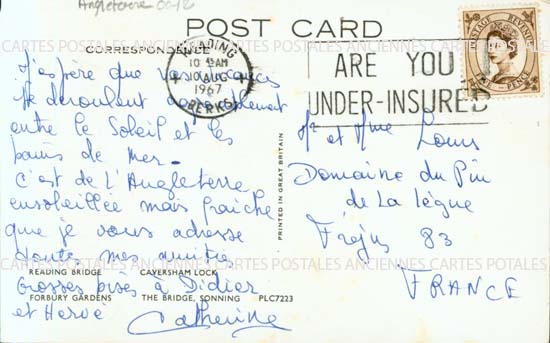 Angleterre
POST CARD
CORRESPONDENCE
READING
10 AM
10 AUG
1967
BERKS
ARE YOU
UNDER-INSURED
POSTAGE REVENUE
PENCE
J'espère que vos vacances
se déroulent agréablement
entre le Soleil et les
bains de mer.
C'est de L'Angleterre
ensoleillée mais fraîche
que je vous adresse
toutes mes amitiés
Grosses bises à Didier
et Hervé
Catherine
READING BRIDGE CAVERSHAM LOCK
FORBURY GARDENS THE BRIDGE, SONNING PLC7223
PRINTED IN GREAT BRITAIN
Mr et Mme Louis
Domaine du Pin
de La Lègue
Fréjus 83
FRANCE
CARTES POSTALES ANCIENNES CARTES POSTALES ANCIENNES